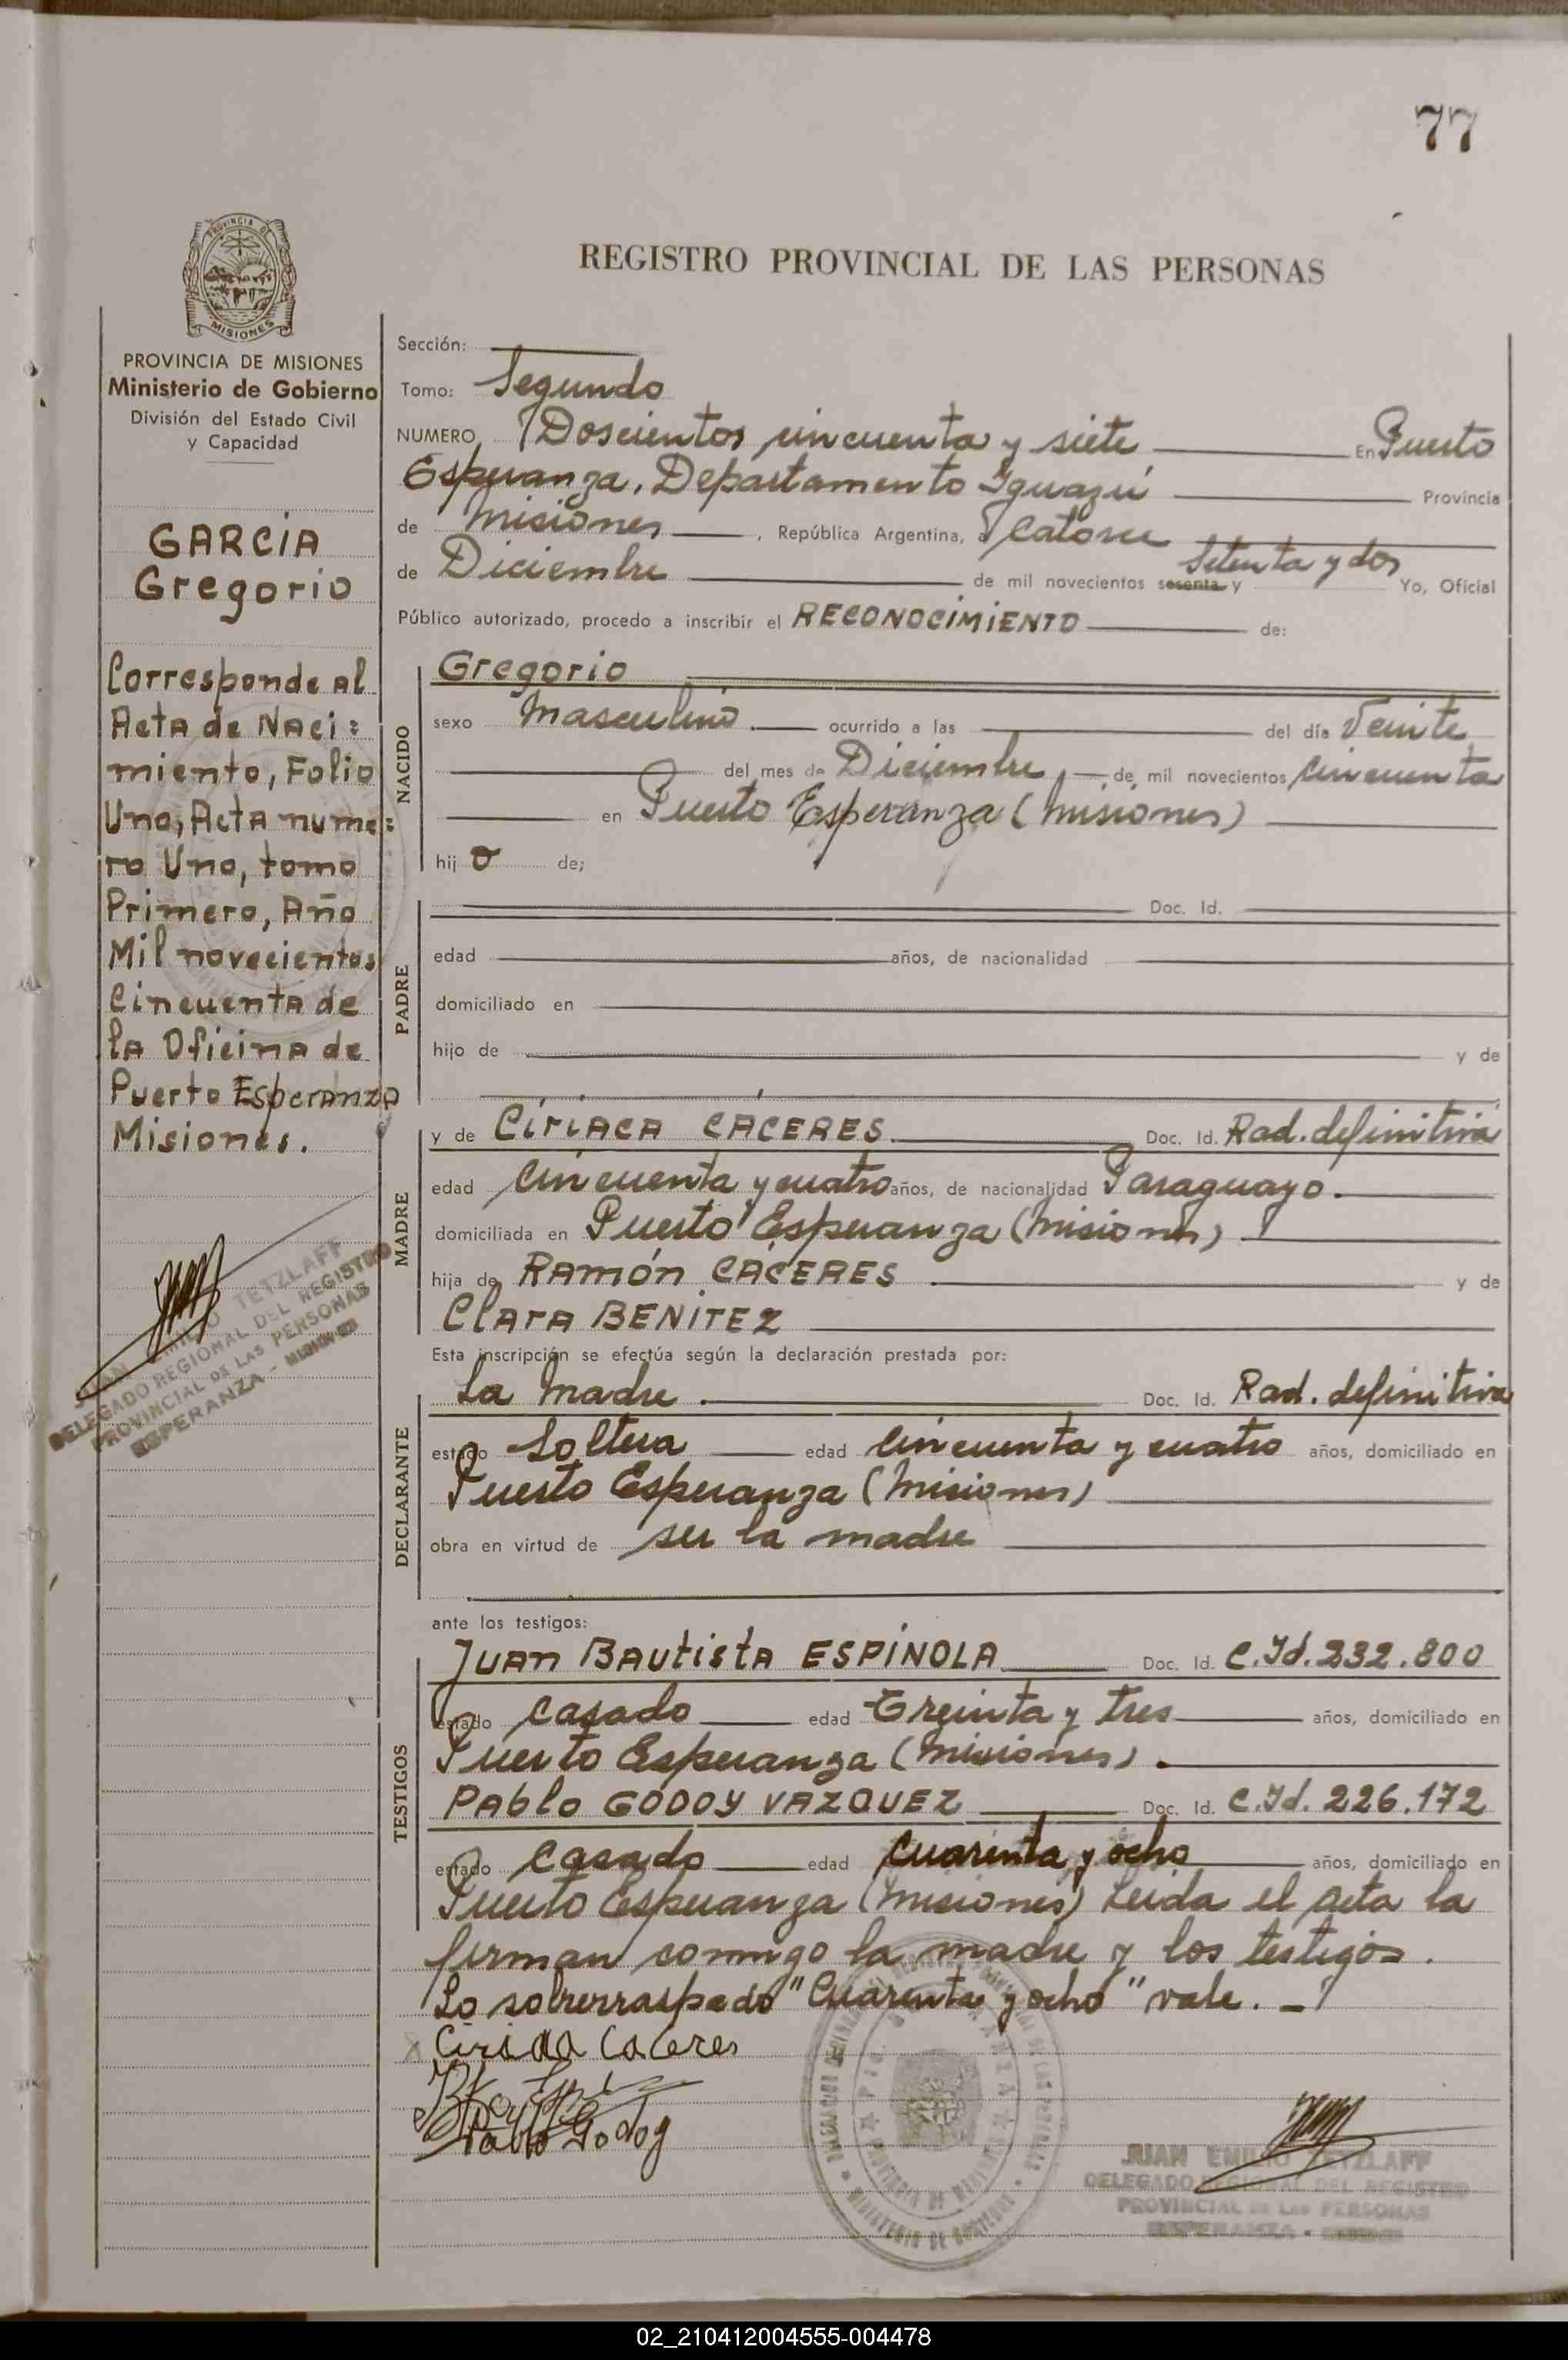 77
PROVINCIA DE
MISIONES
REGISTRO PROVINCIAL DE LAS PERSONAS
PROVINCIA DE MISIONES
Ministerio de Gobierno
División del Estado Civil
y Capacidad
GARCÍA
Gregorio
Corresponde al
Acta de Naci=
miento, Folio
Uno, Acta nume=
ro Uno, tomo
Primero, Año
Mil novecientos
Cincuenta de
la Oficina de
Puerto Esperanza
Misiones.
JUAN EMILIO TETZLAFF
DELEGADO REGIONAL DEL REGISTRO
PROVINCIAL DE LAS PERSONAS
ESPERANZA - MISIONES
Sección:
Tomo: Segundo
NUMERO Doscientos cincuenta y siete En Puerto
Esperanza, Departamento Iguazú Provincia
de Misiones, República Argentina, a Catorce
de Diciembre de mil novecientos sesenta y Setenta y dos Yo, Oficial
Público autorizado, procedo a inscribir el RECONOCIMIENTO de:
NACIDO
Gregorio
sexo Masculino ocurrido a las del día Veinte
del mes de Diciembre, de mil novecientos cincuenta
en Puerto Esperanza (Misiones)
hij o de;
PADRE
Doc. Id.
edad años, de nacionalidad
domiciliado en
hijo de y de
MADRE
y de Ciriaca CÁCERES Doc. Id. Rad. definitiva
edad Cincuenta y cuatro años, de nacionalidad Paraguayo.
domiciliada en Puerto Esperanza (Misiones)
hija de Ramón CÁCERES y de
Clara BENÍTEZ
Esta inscripción se efectúa según la declaración prestada por:
DECLARANTE
La Madre Doc. Id. Rad. definitiva
estado Soltera edad Cincuenta y cuatro años, domiciliado en
Puerto Esperanza (Misiones)
obra en virtud de ser la madre
ante los testigos:
TESTIGOS
Juan Bautista ESPÍNOLA Doc. Id. C.Id. 232.800
estado Casado edad Treinta y tres años, domiciliado en
Puerto Esperanza (Misiones).
Pablo GODOY VAZQUEZ Doc. Id. C.Id. 226.172
estado Casado edad Cuarenta y ocho años, domiciliado en
Puerto Esperanza (Misiones) Leida el acta la
firman conmigo la madre y los testigos.
Lo sobrerraspado "Cuarenta y ocho" vale.-
Ciriaca Caceres
Pablo Godoy
JUAN EMILIO TETZLAFF
DELEGADO REGIONAL DEL REGISTRO
PROVINCIAL DE LAS PERSONAS
ESPERANZA - MISIONES
02_210412004555-004478